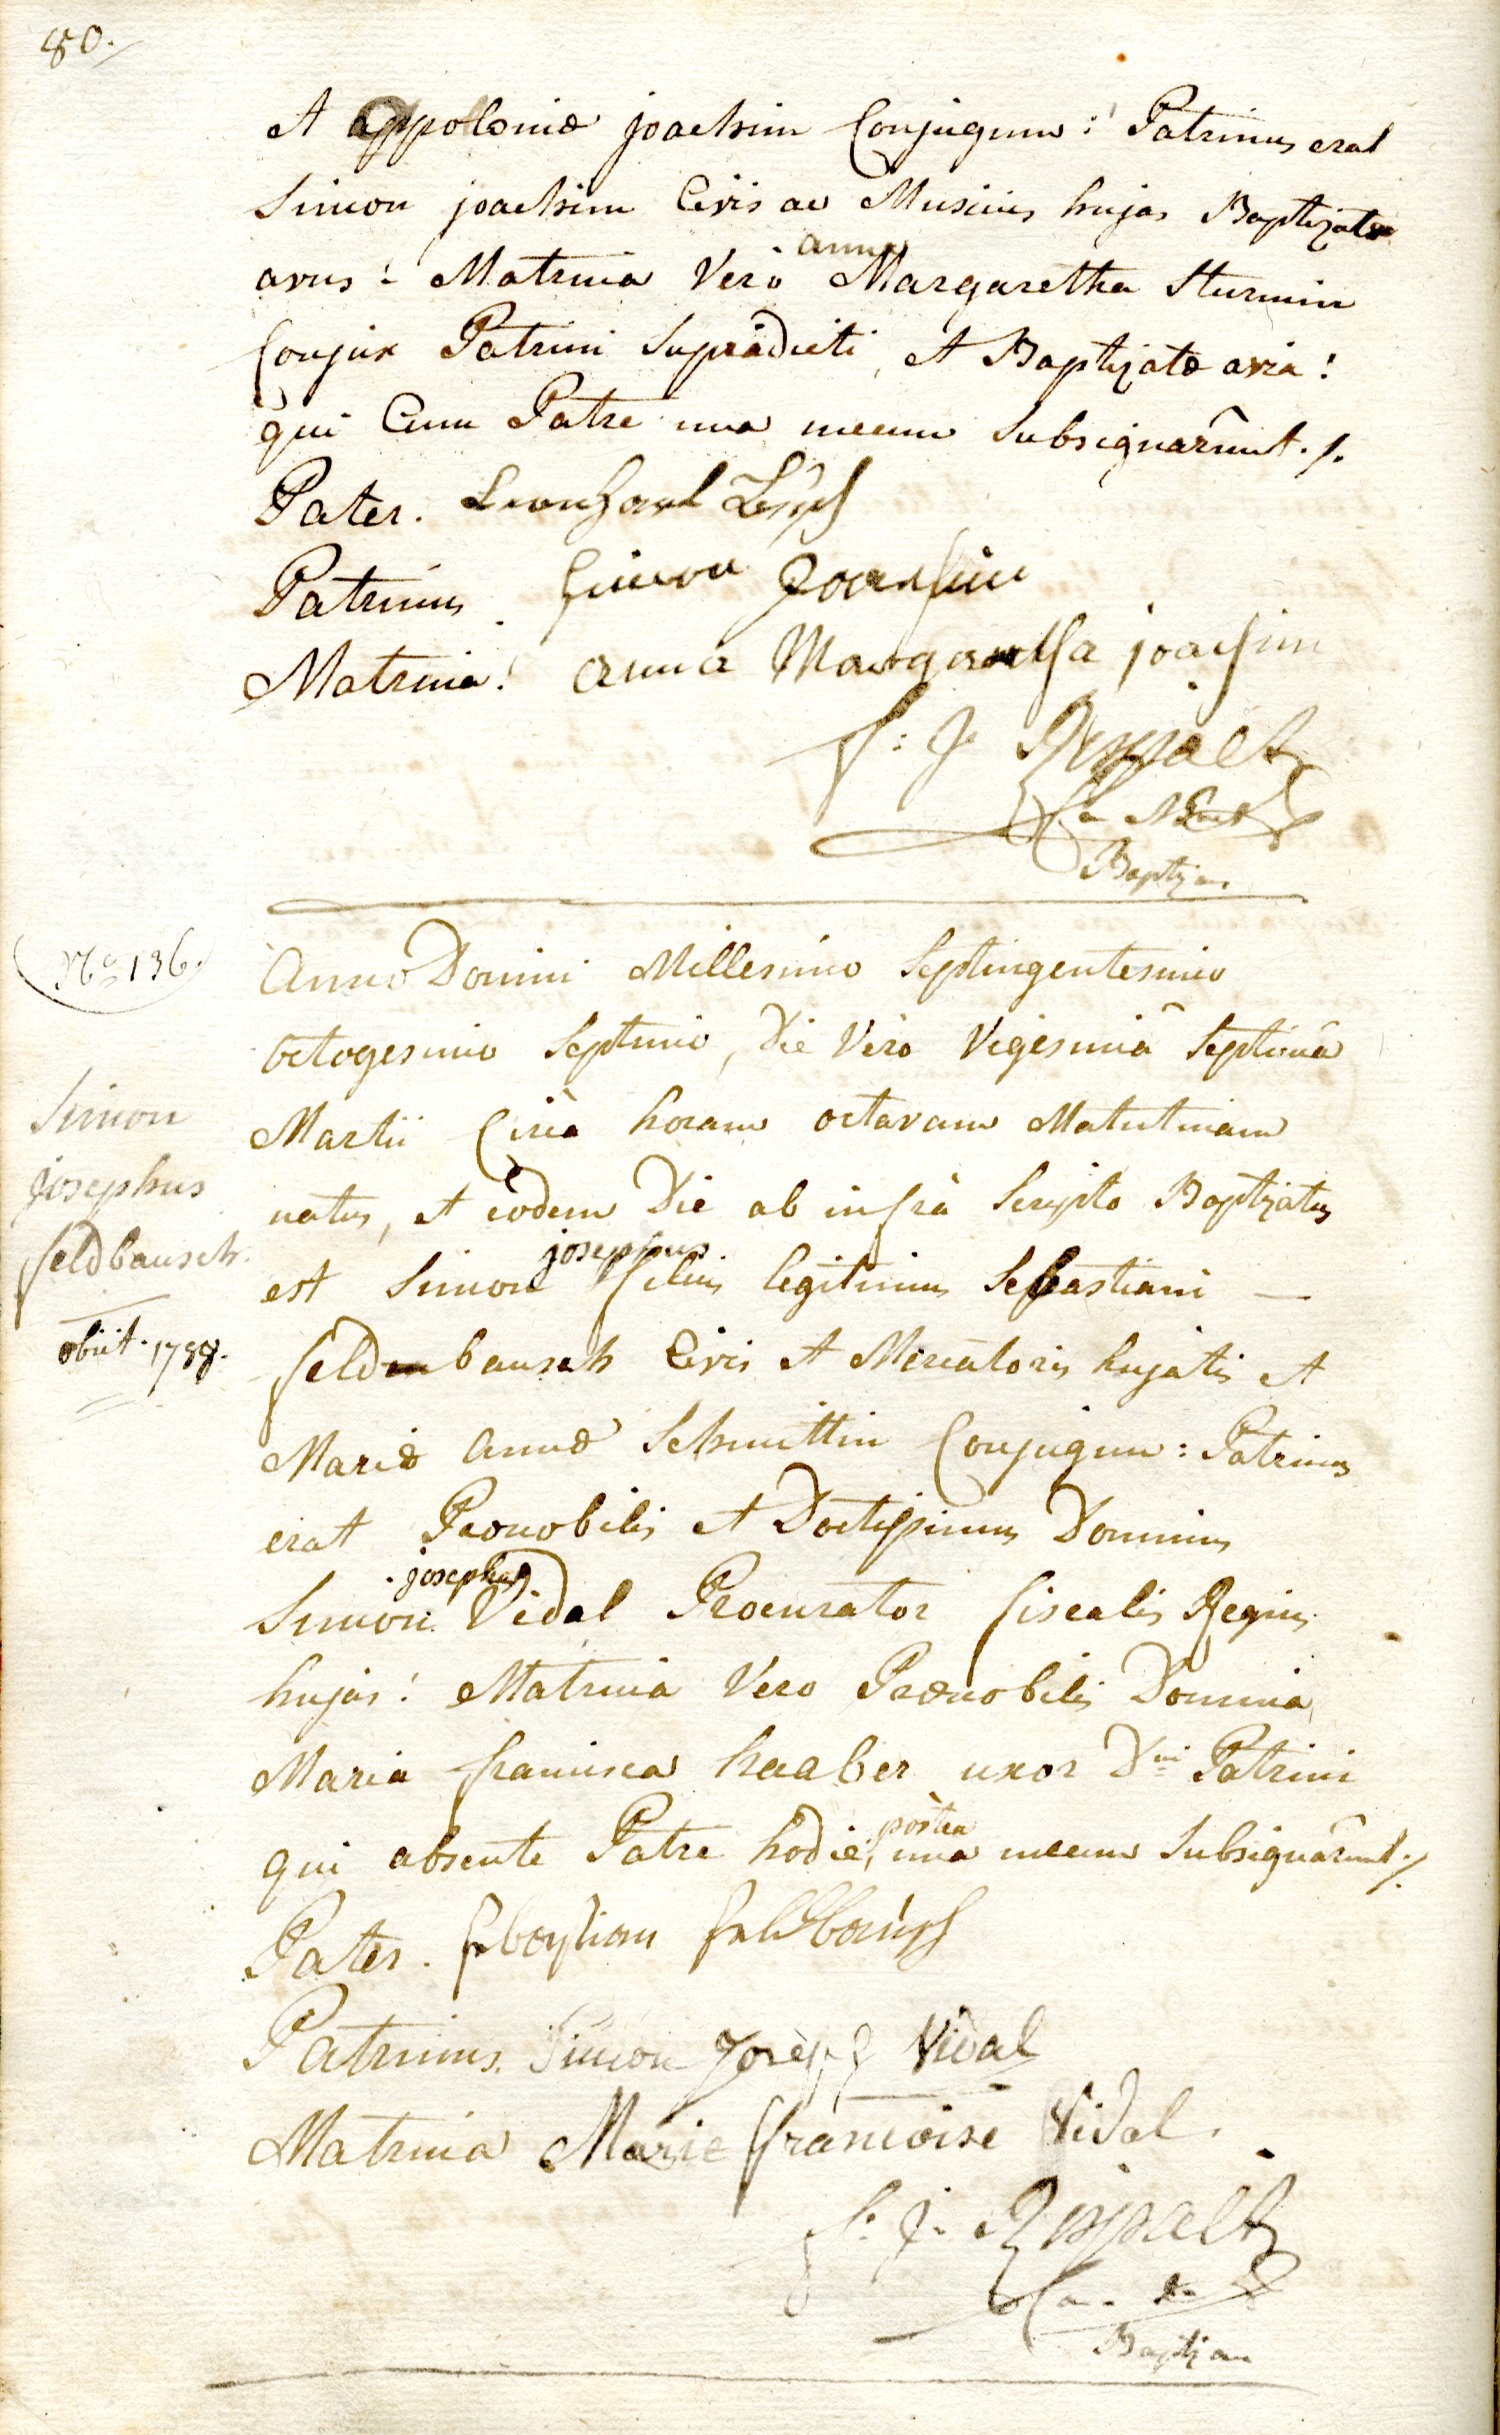 80.
et appoloniæ joachim Conjugum: Patrinus erat
Simon joachim Civis ac Musicus hujas Baptizatæ
avus: Matrina Verò anna Margaretha Sturmin
Conjux Patrini Supradicti, et Baptizatæ avia:
qui Cum Patre una mecum Subsignarûnt ./.
Pater. Leonhard
Patrinus. Simon Joachim
Matrina: anna Margaretha joachim
f: J.
Baptizans
No 136.
Anno Domini Millesimo Septingentesimo
octogesimo Septimo, Die Verò Vigesimâ Septimâ
Martii Circà horam octavam Matutinam
natus, et eodem Die ab infrà Scripto Baptizatus
est Simon josephus filius legitimus Sebastiani —
feldbausch Civis et Mercatoris hujatis et
Mariæ annæ Schmittin Conjugum: Patrinus
erat Prænobilis et Doctissimus Dominus
Simon josephus Vidal Procurator fiscalis Regius
hujas: Matrina Vero Prænobilis Domina
Maria francisca haaber uxor Dni Patrini
qui absente Patre hodie, postea una mecum Subsignarûnt ./.
Simon
josephus
feldbausch.
obiit. 1788.
Pater. Sebastian Feldbausch
Patrinus. Simon Joseph Vidal
Matrina Marie françoise Vidal.
f: J.
Baptizans